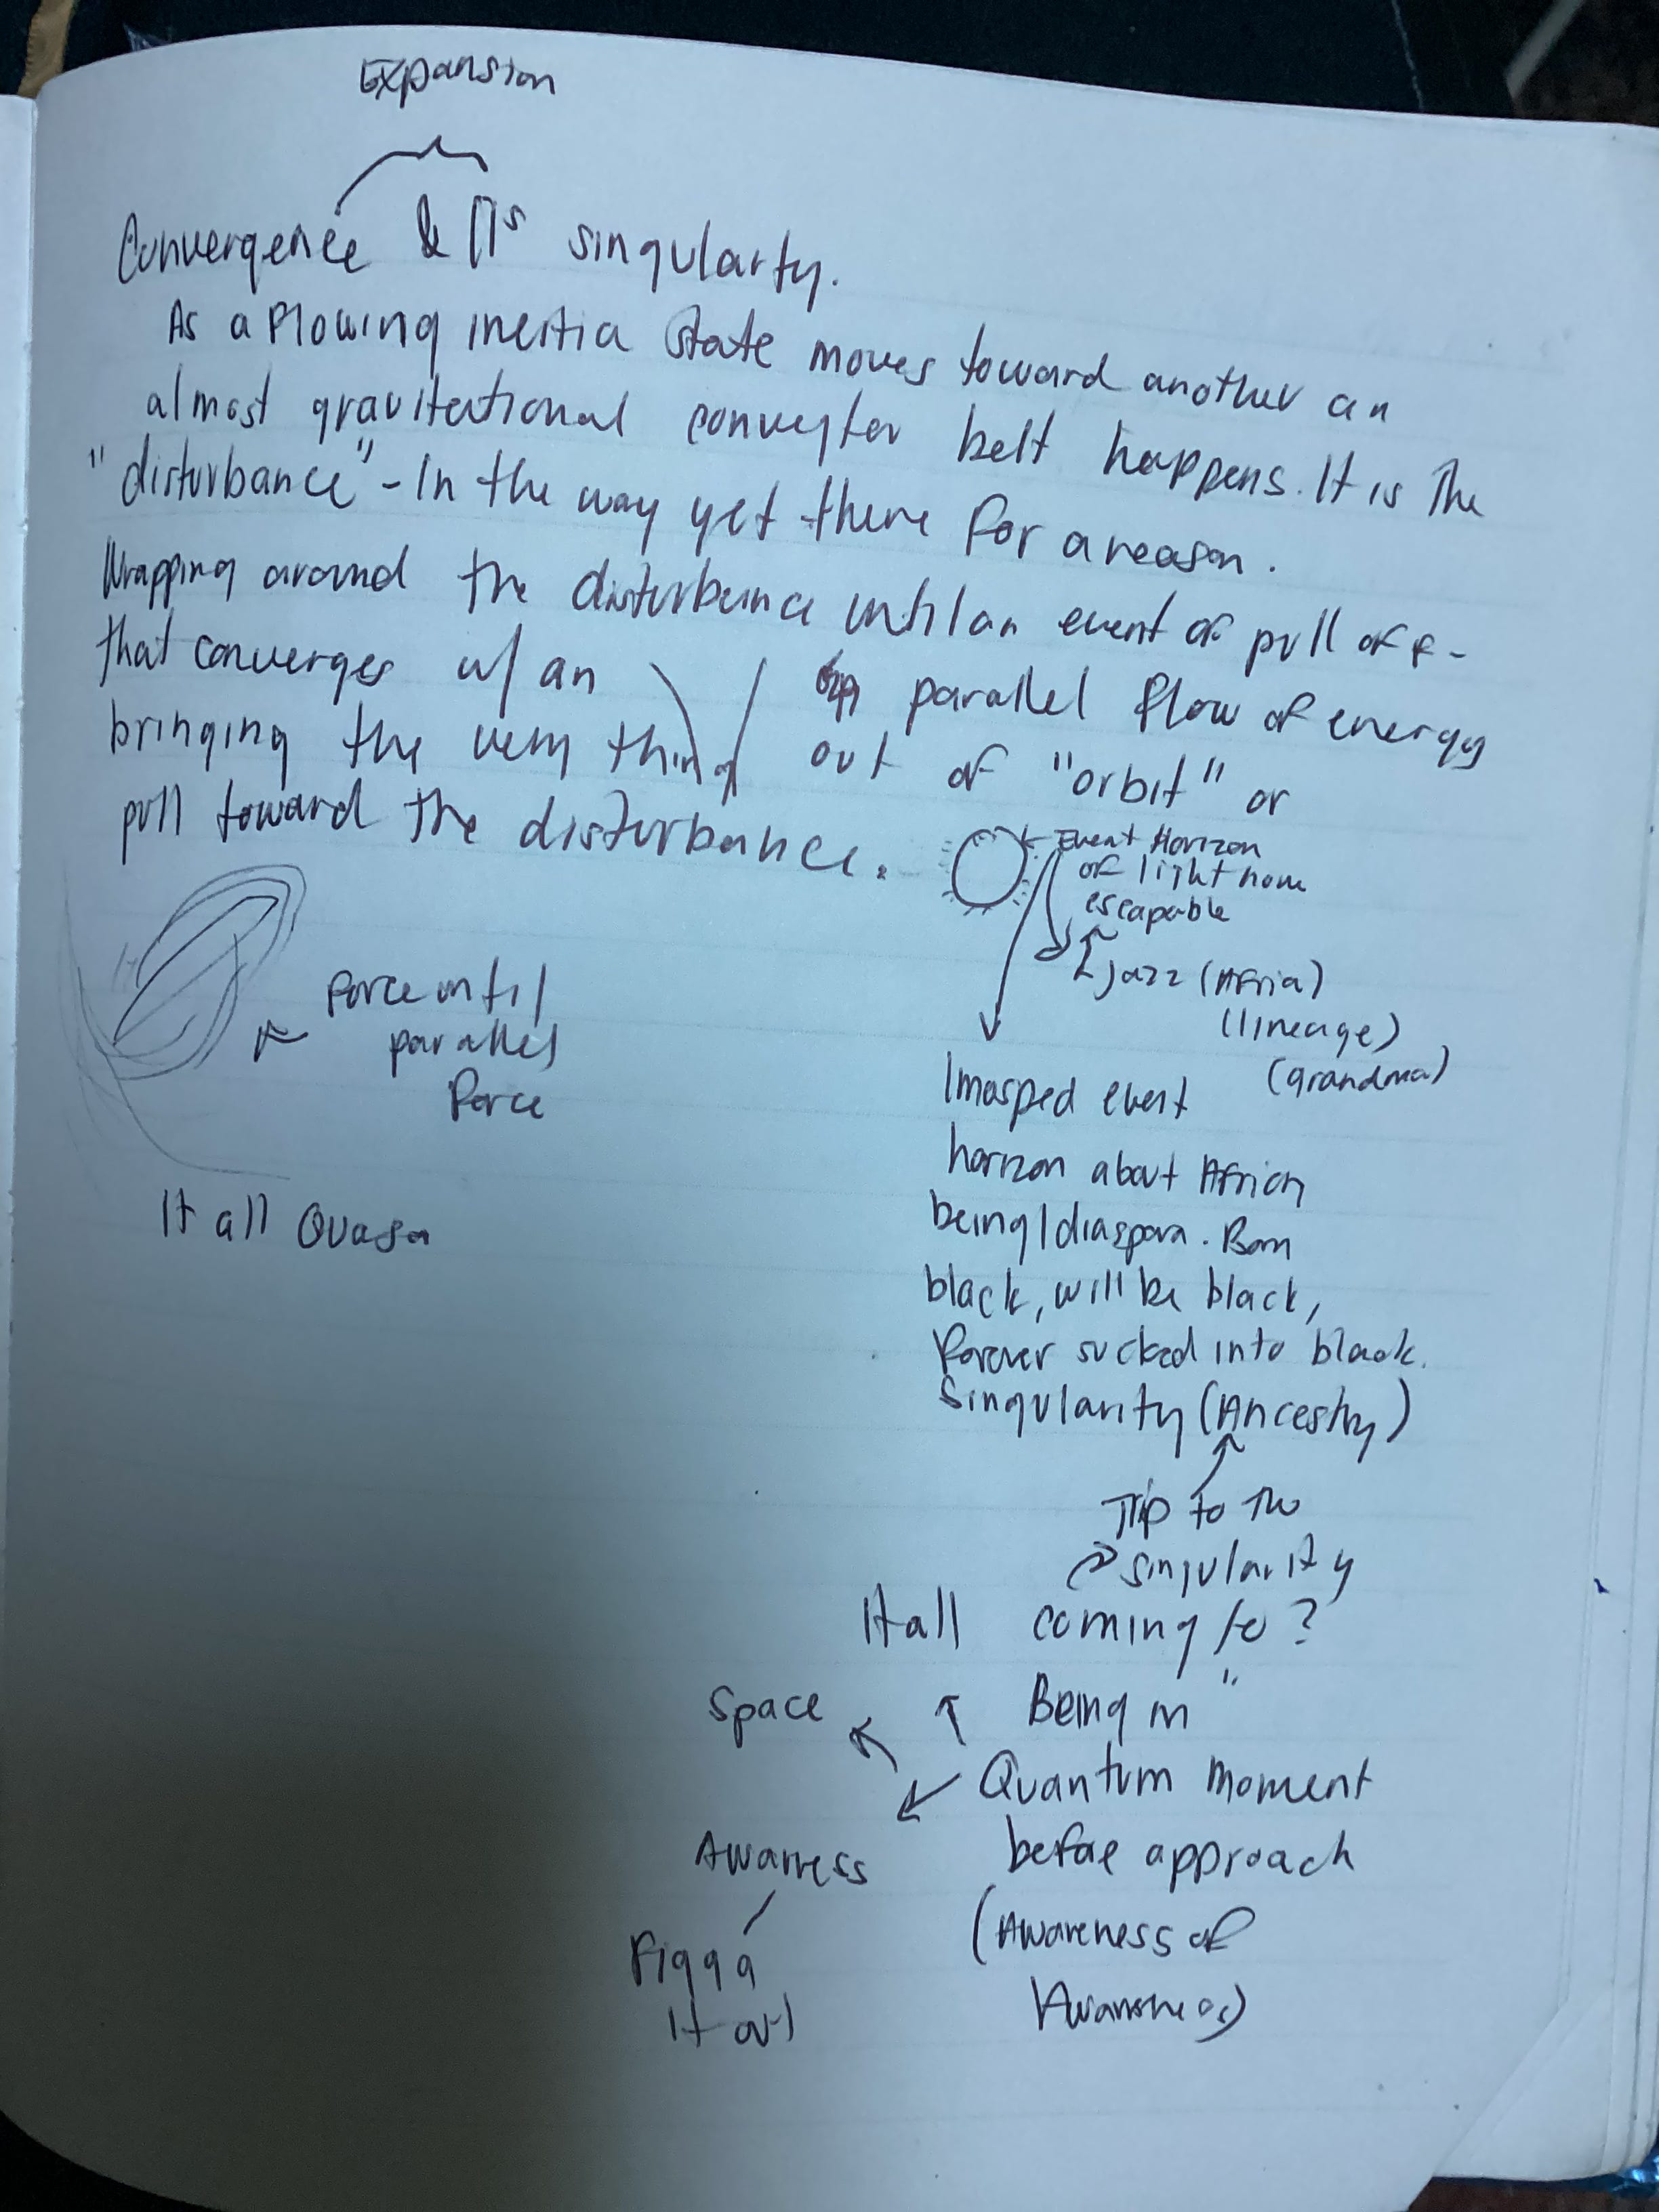 Expansion
Convergence & It's singularty.
As a flowing inertia state moves toward another an
almost gravitational conveyter belt happens. It is the
"disturbance" - In the way yet there for a reason.
Wrapping around the disturbance until an event of pull off -
that converges w/ an parallel flow of energy
bringing the very thing out of "orbit" or
pull toward the disturbance.
Event Horizon
of light none
escapable
Jazz (Afria)
(lineage)
(grandma)
Force until
parallel
Force
It all Quasa
event
horizon about African
being/diaspora. Born
black, will be black,
forever sucked into black.
Singularity (Ancestry)
Trip to the
singularity
It all coming to?
Being in "
Space
Quantum moment
before approach
(Awareness of
Awarness
Figga
It out